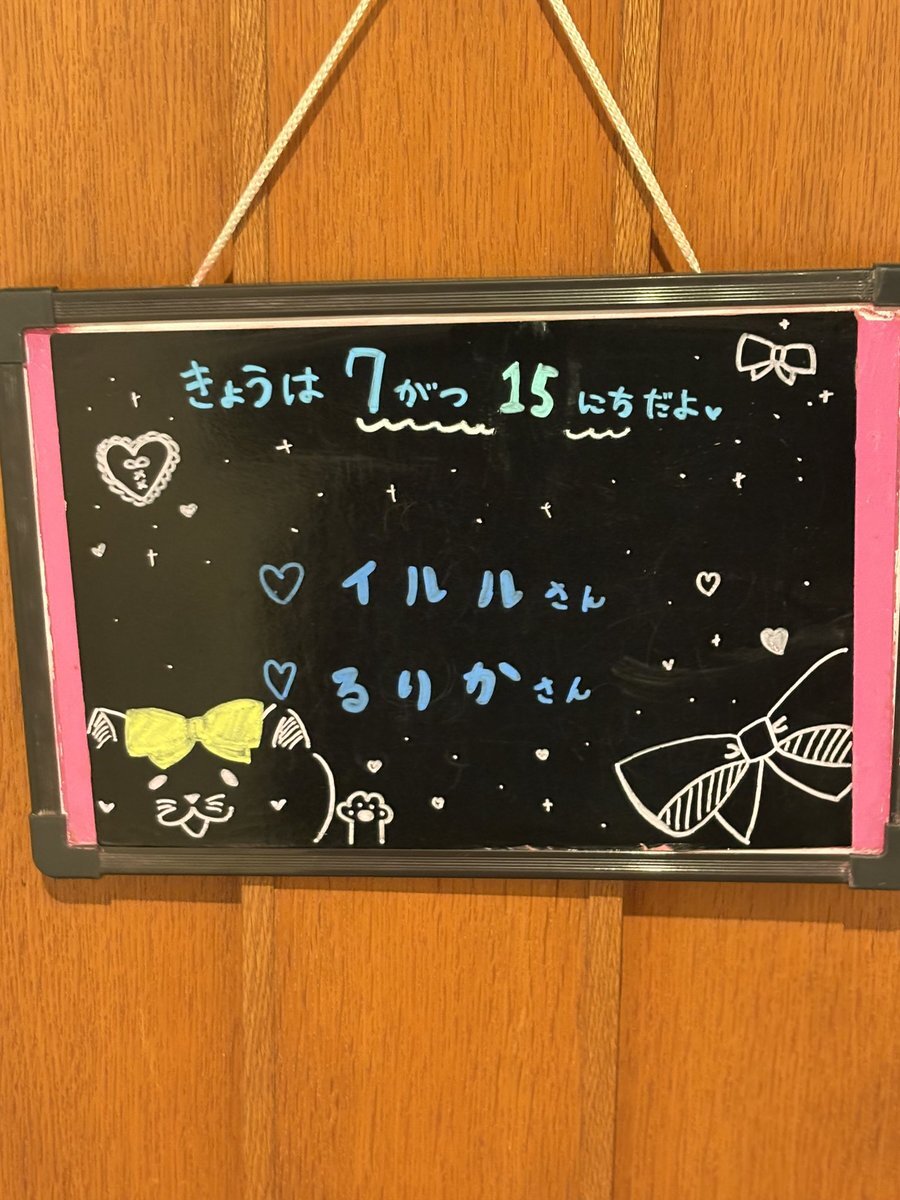 きょうは 7がつ 15にちだよ♥
♡ イルルさん
♡ るりかさん